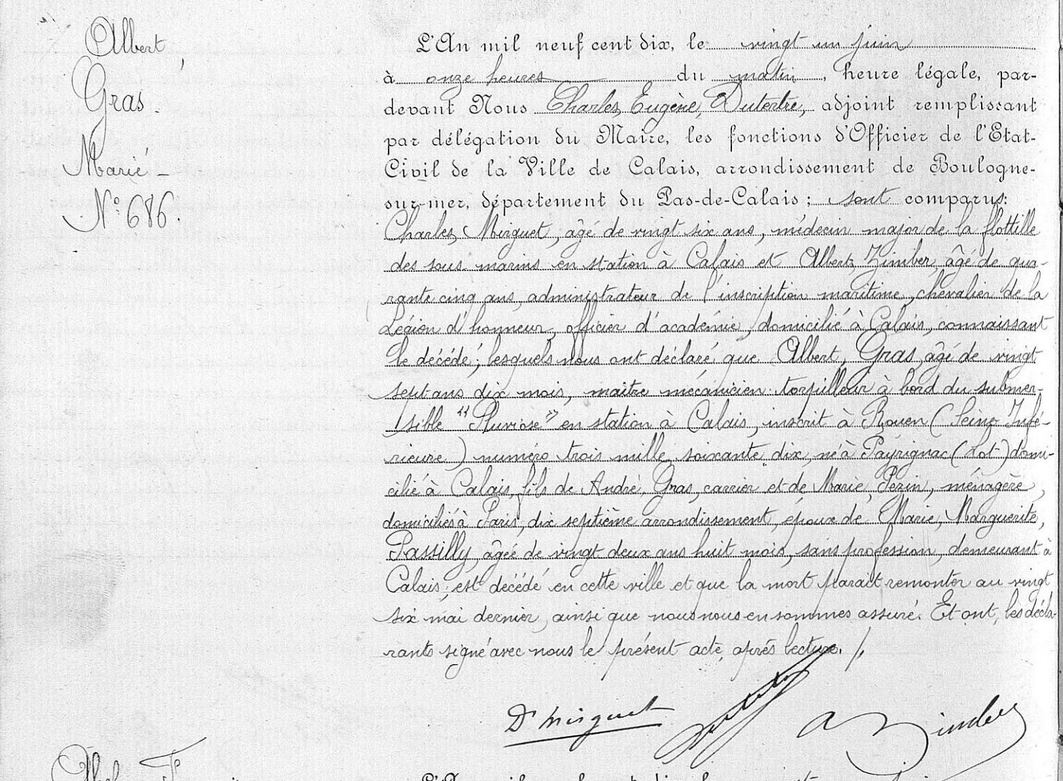 Albert
Gras
Marié
N° 686.
L'An mil neuf cent dix, le vingt un juin
à onze heures du matin, heure légale, par-
devant Nous Charles, Eugène, Dutertre, adjoint remplissant
par délégation du Maire, les fonctions d'Officier de l'Etat-
Civil de la Ville de Calais, arrondissement de Boulogne-
sur-mer, département du Pas-de-Calais ; sont comparus:
Charles, Mirguet, âgé de vingt six ans, médecin major de la flottille
des sous marins en station à Calais et Albert, Zimber, âgé de qua-
rante cinq ans, administrateur de l'inscription maritime, chevalier de la
Légion d'honneur, officier d'académie, domicilié à Calais, connaissant
le décédé; lesquels nous ont déclaré que Albert, Gras, âgé de vingt
sept ans dix mois, maître mécanicien torpilleur à bord du submer-
sible "Pluviose" en station à Calais, inscrit à Rouen (Seine Infé-
rieure) numéro trois mille, soixante dix, né à Payrignac (Lot) domi-
cilié à Calais, fils de André, Gras, carrier et de Marie, Perin, ménagère,
domiciliés à Paris, dix septième arrondissement, époux de Marie, Marguerite,
Passilly, âgée de vingt deux ans huit mois, sans profession, demeurant à
Calais, est décédé en cette ville et que la mort paraît remonter au vingt
six mai dernier, ainsi que nous nous en sommes assuré. Et ont, les décla-
rants signé avec nous le présent acte, après lecture. /.
Dr Mirguet
A Zimber